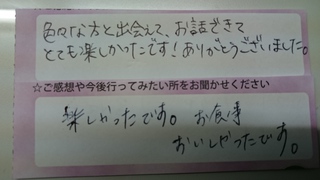 色々な方と出会えて、お話できて
とても楽しかったです!ありがとうございました。
☆ご感想や今後行ってみたい所をお聞かせください
楽しかったです。 お食事
おいしかったです。